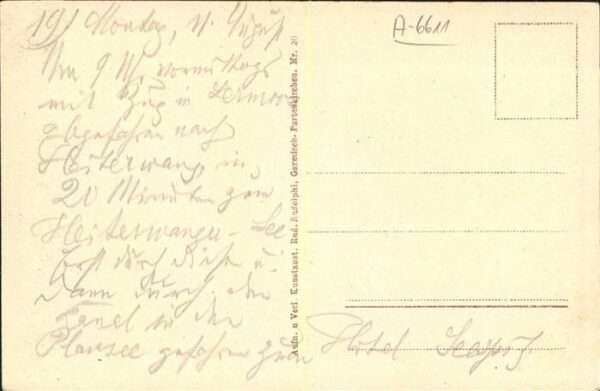 19) Montag, 11. August
Um 9 Uhr vormittags
mit Zug in Lermoos
abgefahren nach
Heiterwang, in
20 Minuten zum
Heiterwanger-See
Erst durch diesen u.
dann durch den
Kanal in den
Plansee gefahren zum
Hotel Seespitz
A-6611
Aufn. u. Verl. Kunstanst. Rud. Rudolphi, Garmisch-Partenkirchen. Nr. 20